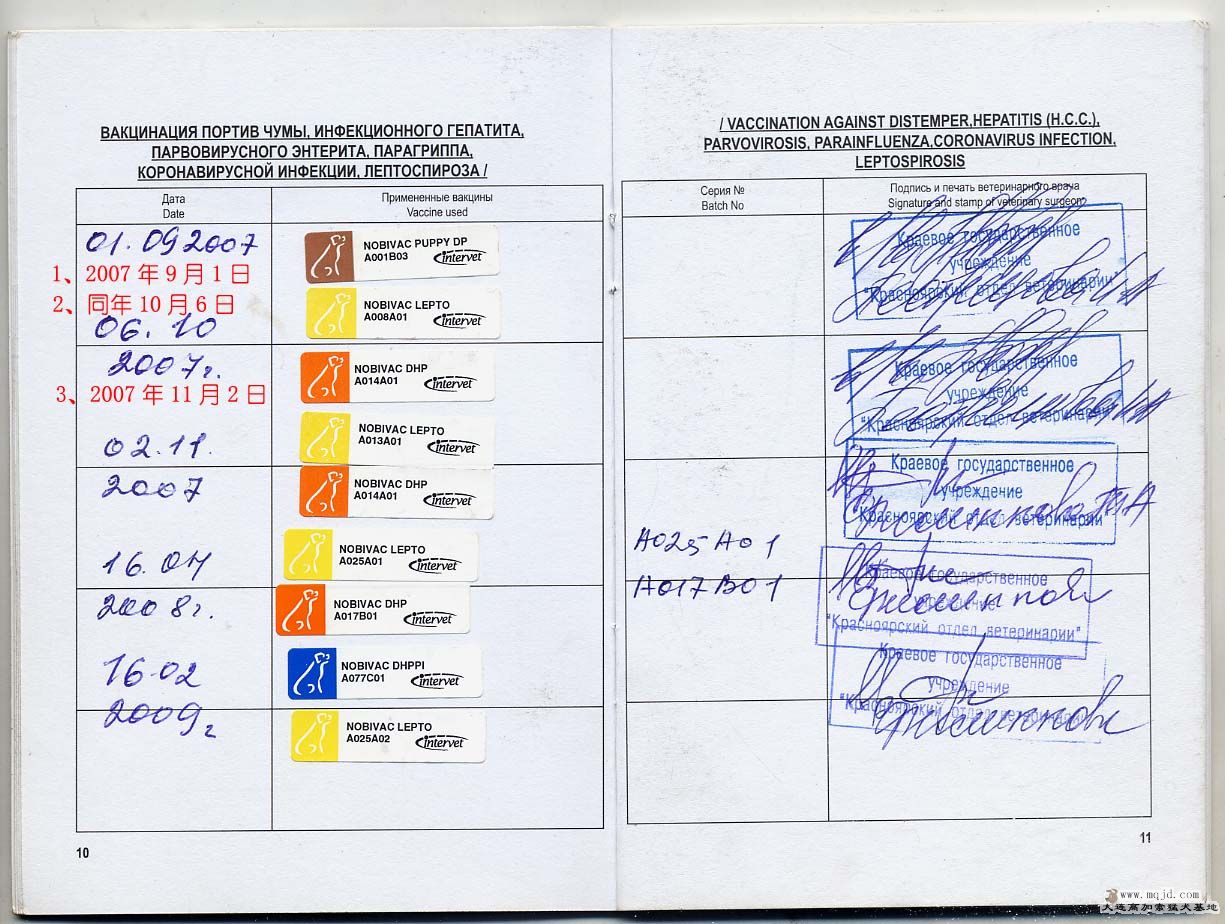 ВАКЦИНАЦИЯ ПОРТИВ ЧУМЫ, ИНФЕКЦИОННОГО ГЕПАТИТА,
ПАРВОВИРУСНОГО ЭНТЕРИТА, ПАРАГРИППА,
КОРОНАВИРУСНОЙ ИНФЕКЦИИ, ЛЕПТОСПИРОЗА /
Дата
Date
Примененные вакцины
Vaccine used
01.09 2007
1、2007年9月1日
2、同年10月6日
06.10
2007г.
3、2007年11月2日
02.11.
2007
16.04
2008г.
16.02
2009г
NOBIVAC PUPPY DP
A001B03
Intervet
NOBIVAC LEPTO
A008A01
Intervet
NOBIVAC DHP
A014A01
Intervet
NOBIVAC LEPTO
A013A01
Intervet
NOBIVAC DHP
A014A01
Intervet
NOBIVAC LEPTO
A025A01
Intervet
NOBIVAC DHP
A017B01
Intervet
NOBIVAC DHPPI
A077C01
Intervet
NOBIVAC LEPTO
A025A02
Intervet
10
/ VACCINATION AGAINST DISTEMPER,HEPATITIS (H.C.C.),
PARVOVIROSIS, PARAINFLUENZA,CORONAVIRUS INFECTION,
LEPTOSPIROSIS
Серия №
Batch No
Подпись и печать ветеринарного врача
Signature and stamp of veterinary surgeon
A025A01
A017B01
Краевое государственное
учреждение
"Красноярский отдел ветеринарии"
Краевое государственное
учреждение
"Красноярский отдел ветеринарии"
Краевое государственное
учреждение
"Красноярский отдел ветеринарии"
Краевое государственное
учреждение
"Красноярский отдел ветеринарии"
Краевое государственное
учреждение
"Красноярский отдел ветеринарии"
11
www.mqjd.com
大连高加索猛犬基地